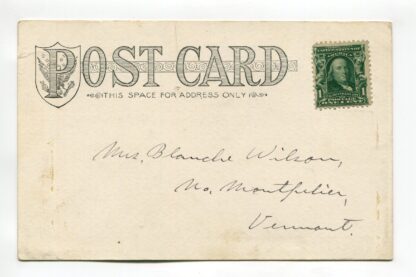 POST CARD
THIS SPACE FOR ADDRESS ONLY
Mrs. Blanche Wilson,
No. Montpelier,
Vermont.